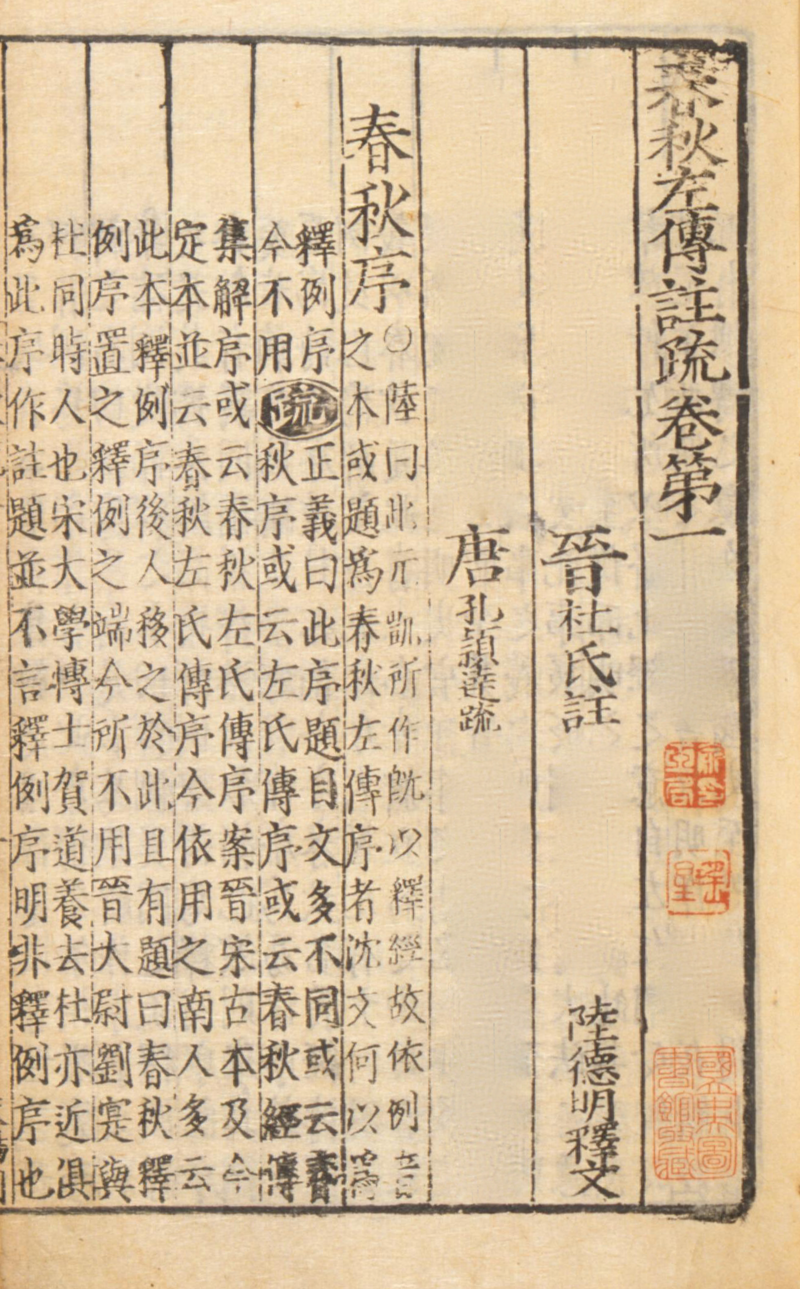 春秋左傳註疏卷第一
晉杜氏註 陸德明釋文
唐孔穎達疏
春秋序○陸曰此元凱所作既以釋經故依例音
之本或題爲春秋左傳序者沈文何以爲
釋例序
今不用
疏
正義曰此序題目文多不同或云春
秋序或云左氏傳序或云春秋經傳
集解序或云春秋左氏傳序案晉宋古本及今
定本並云春秋左氏傳序今依用之南人多云
此本釋例序後人移之於此且有題曰春秋釋
例序置之釋例之端今所不用晉大尉劉寔與
杜同時人也宋大學慱士賀道養去杜亦近俱
爲此序作註題並不言釋例序明非釋例序也